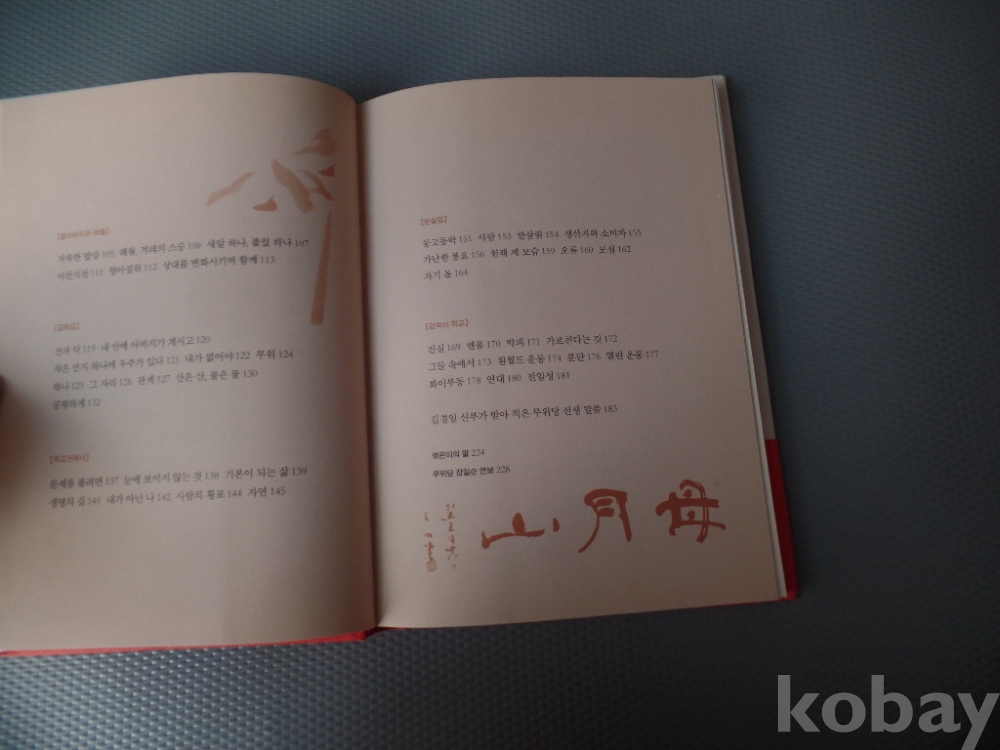 [할아버지와 해월]
거룩한 밥상 105 해월, 겨레의 스승 106 새알 하나, 풀잎 하나 107
이천식천 111 향아설위 112 상대를 변화시키며 함께 113
[골목길]
선과 악 119 내 안에 아버지가 계시고 120
작은 먼지 하나에 우주가 있다 121 내가 없어야 122 무위 124
하나 125 그 자리 126 관계 127 산은 산, 물은 물 130
공평하게 132
[주교관에서]
문제를 풀려면 137 눈에 보이지 않는 것 138 기본이 되는 삶 139
생명의 길 141 내가 아닌 나 142 사람의 횡포 144 자연 145
[한살림]
동고동락 151 사람 153 한살림 154 생산자와 소비자 155
가난한 풍요 156 원래 제 모습 159 오류 160 모심 162
자기 몫 164
[감옥이 학교]
진실 169 맨몸 170 박피 171 가르친다는 것 172
그들 속에서 173 원월드 운동 174 분단 176 열린 운동 177
화이부동 178 연대 180 전일성 181
김경일 신부가 받아 적은 무위당 선생 말씀 183
엮은이의 말 224
무위당 장일순 연보 228
母月山
kobay